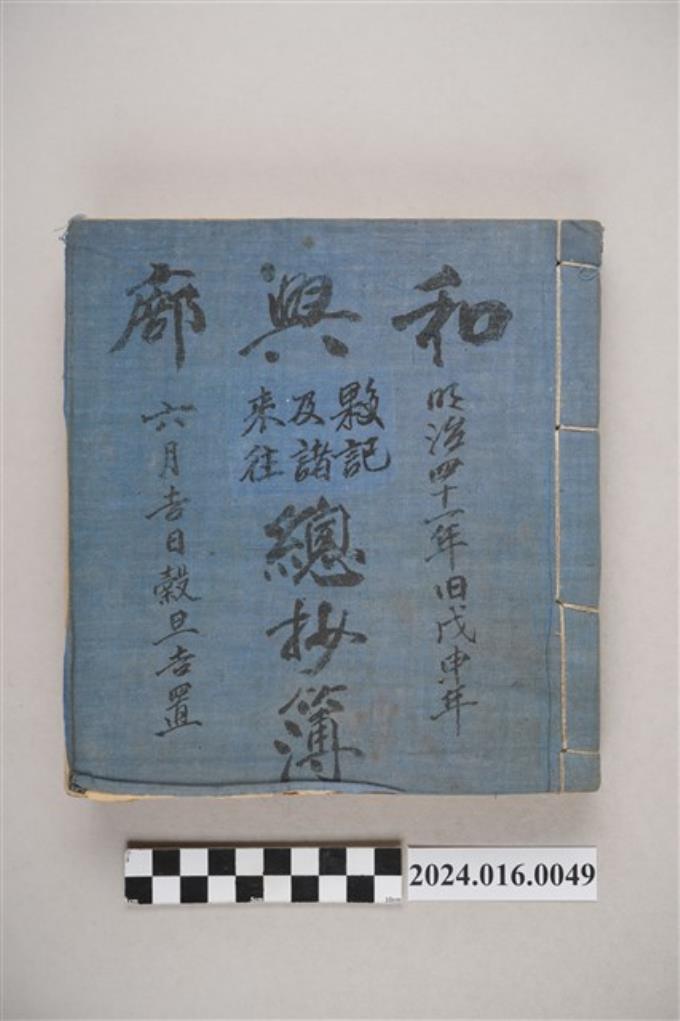 和興廍
明治四十一年旧戊申年
夥記
及諸
来往
總抄簿
六月吉日穀旦吉置
2024.016.0049